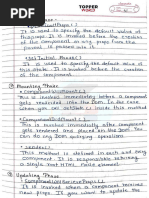 TOPPER
WORLD
Phase :-
Default Props ( )
It is used to specify the default value of
this.props. It is invoked before the creation
of the component or any props from the
parent is passed into it.
It is used to specify the default
value of this.state. It is invoked before the creation
of the component.
2) Mounting Phase
This is invoked immediately before a component
gets rendered into the DOM. In the case,
when you call setState( ) inside this method,
the component will not
This is invoked immediately after component
gets rendered and placed on the DOM. You
can do any DOM querying operations.
• render( )
This method is defined in each and every
component. It is responsible for returning
a single root HTML node element.
3) Updating Phase
It is invoked when a component receives
new props. If you want to update the